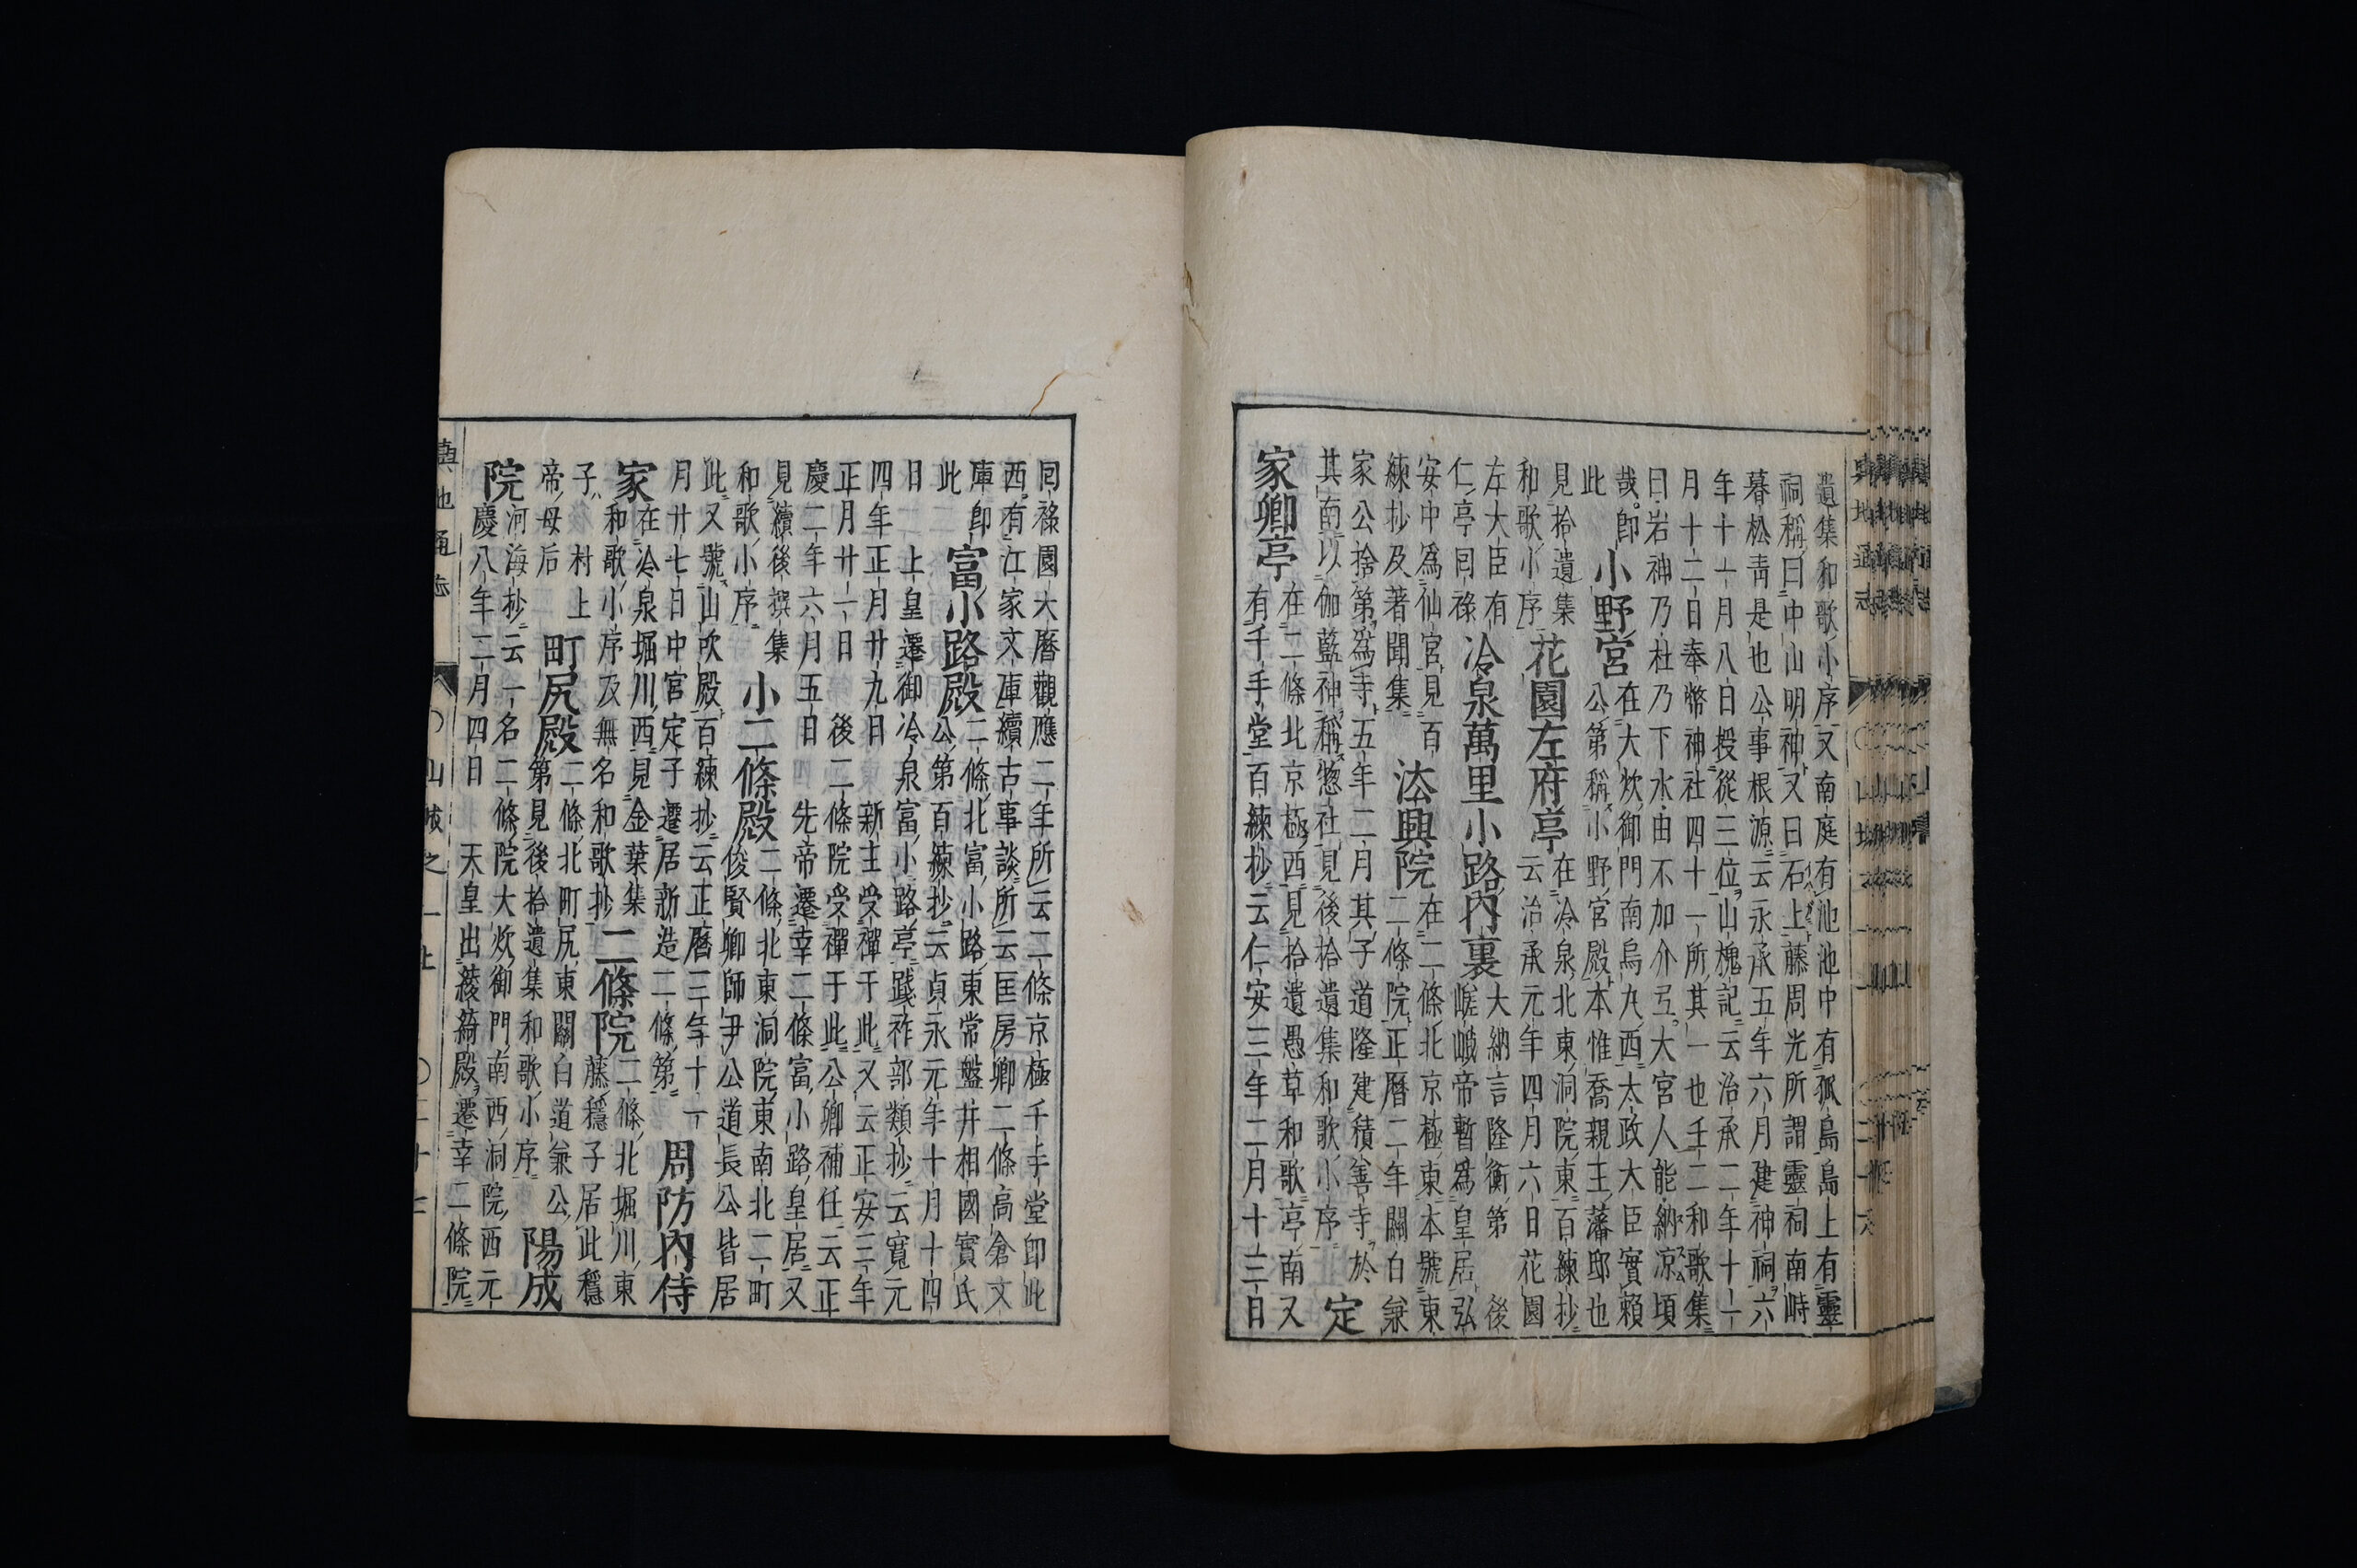 遺集和歌小序又南庭有池池中有孤島島上有靈
祠稱曰中山明神又曰石上藤周光所謂靈祠南峙
暮松青是也公事根源云永承五年六月建神祠六
年十一月八日授從三位山槐記云治承二年十一
月十二日奉幣神社四十一所其一也壬二和歌集
曰岩神乃杜乃下水由不加介弖大宮人能納涼頃
哉即
此
小野宮
在大炊御門南烏丸西太政大臣實賴
公第稱小野宮殿本惟喬親王藩邸也
見拾遺集
和歌小序
花園左府亭
在冷泉北東洞院東百練抄
云治承元年四月六日花園
左大臣有
仁亭冋祿
冷泉萬里小路內裏
大納言隆衡第 後
嵯峨帝暫為皇居弘
安中為仙宮見百
練抄及著聞集
法興院
在二條北京極東本號東
二條院正曆二年關白兼
家公捨第為寺五年二月其子道隆建積善寺於
其南以伽藍神稱惣社見後拾遺集和歌小序
定
家卿亭
在二條北京極西見拾遺愚草和歌亭南又
有千手堂百練抄云仁安三年二月十三日
冋祿園大曆觀應二年所云二條京極千手堂即此
西有江家文庫續古事談所云匡房卿二條高倉文
庫即
此
富小路殿
二條北富小路東常盤井相國實氏
公第百練抄云貞永元年十月十四
日 上皇遷御冷泉富小路亭踐祚部類抄云寬元
四年正月廿九日 新主受禪于此又云正安三年
正月廿一日 後二條院受禪于此公卿補任云正
慶二年六月五日 先帝遷幸二條富小路皇居又
見續後撰集
和歌小序
小二條殿
二條北東洞院東南北二町
俊賢卿師尹公道長公皆居
此又號山吹殿百練抄云正曆三年十一
月廿七日中宮定子遷居新造二條第
周防內侍
家
在冷泉堀川西見金葉集
和歌小序及無名和歌抄
二條院
二條北堀川東
藤穩子居此穩
子 村上
帝母后
町尻殿
二條北町尻東關白道兼公
第見後拾遺集和歌小序
陽成
院
河海抄云一名二條院大炊御門南西洞院西元
慶八年二月四日 天皇出綾綺殿遷幸二條院